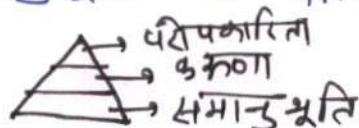 परोपकारिता
करुणा
समानुभूति